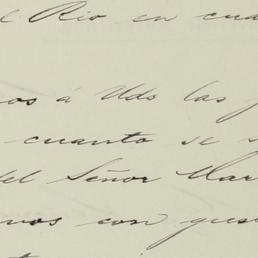 Rio en cua
os á Uds las
cuanto se
del Señor Mar
mos con gus